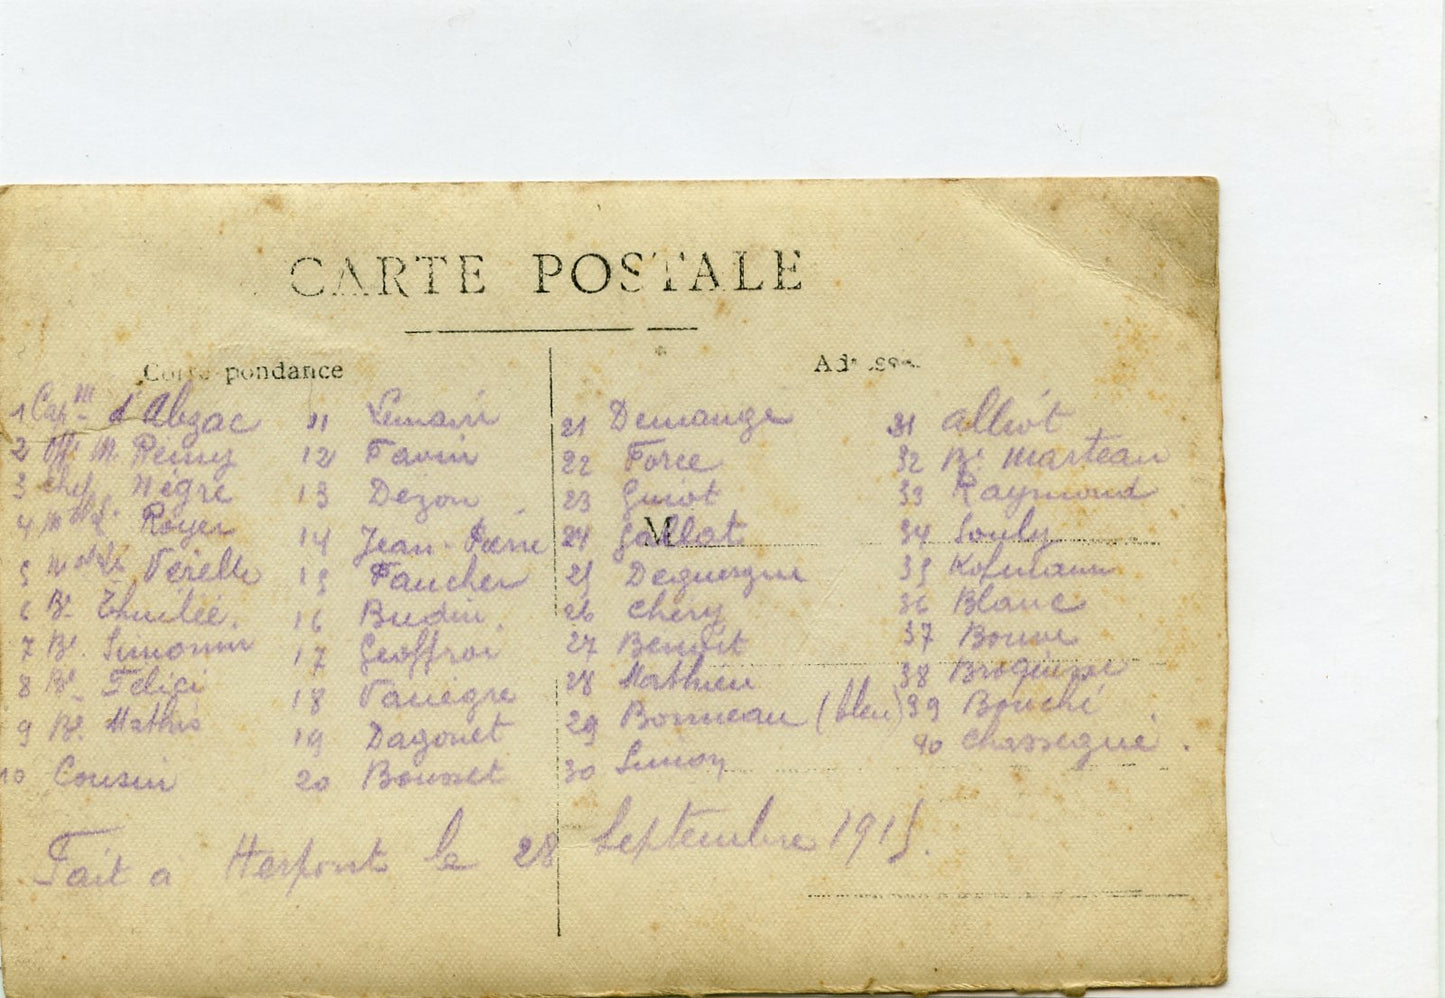 CARTE POSTALE
Correspondance
Adresse
1 Cap.ne d'Abzac
2 M. Rémy
3 chef Négre
4 Royer
5 Vérelle
6 Br Thuilié.
7 Br. Simonin
8 Br Félici
9 Br. Mathis
10 Cousin
11 Lemaire
12 Favin
13 Dezon
14 Jean-Pierre
15 Faucher
16 Budin.
17 Geoffroi
18 Vanègre
19 Dagonet
20 Bousset
21 Demange
22 Force
23 Guiot
24 Gallat
M
25
26 Chéry
27 Benoit
28 Mathieu
29 Bonneau (bleu)
30 Simon
31 Alliot
32 Br Marteau
33 Raymond
34 Souly
35 Kofmann
36 Blanc
37
38
39 Bouché
40 Chassegué.
Fait a Herpont le 28 Septembre 1915.